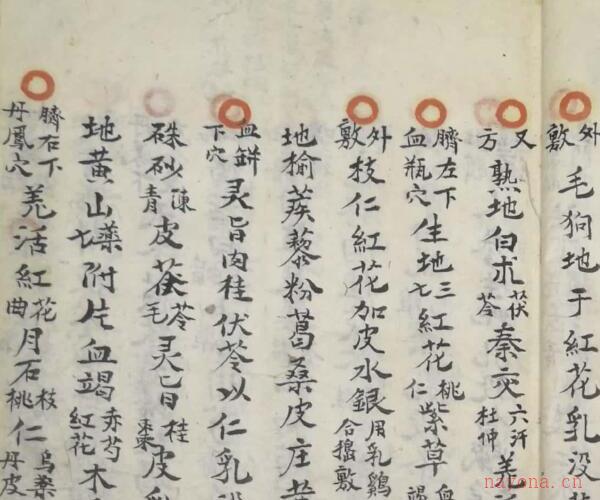 外敷 毛狗地于紅花乳没
又方 熟地白朮茯苓秦艽六汗杜仲羌
臍左下血瓶穴 生地三七紅花桃仁紫草血竭
外敷 枝仁紅花加皮水銀用乳鷄合搗敷
地榆蒺藜粉葛桑皮庄黄
血餅下穴 灵旨肉桂伏苓以仁乳没
硃砂陳青皮茯苓毛灵旨桂棗皮乳
地黄山藥七附片血竭赤芍紅花木
臍右下丹鳳穴 羌活紅花曲月石枝桃仁烏藥丹皮
nayona.cn